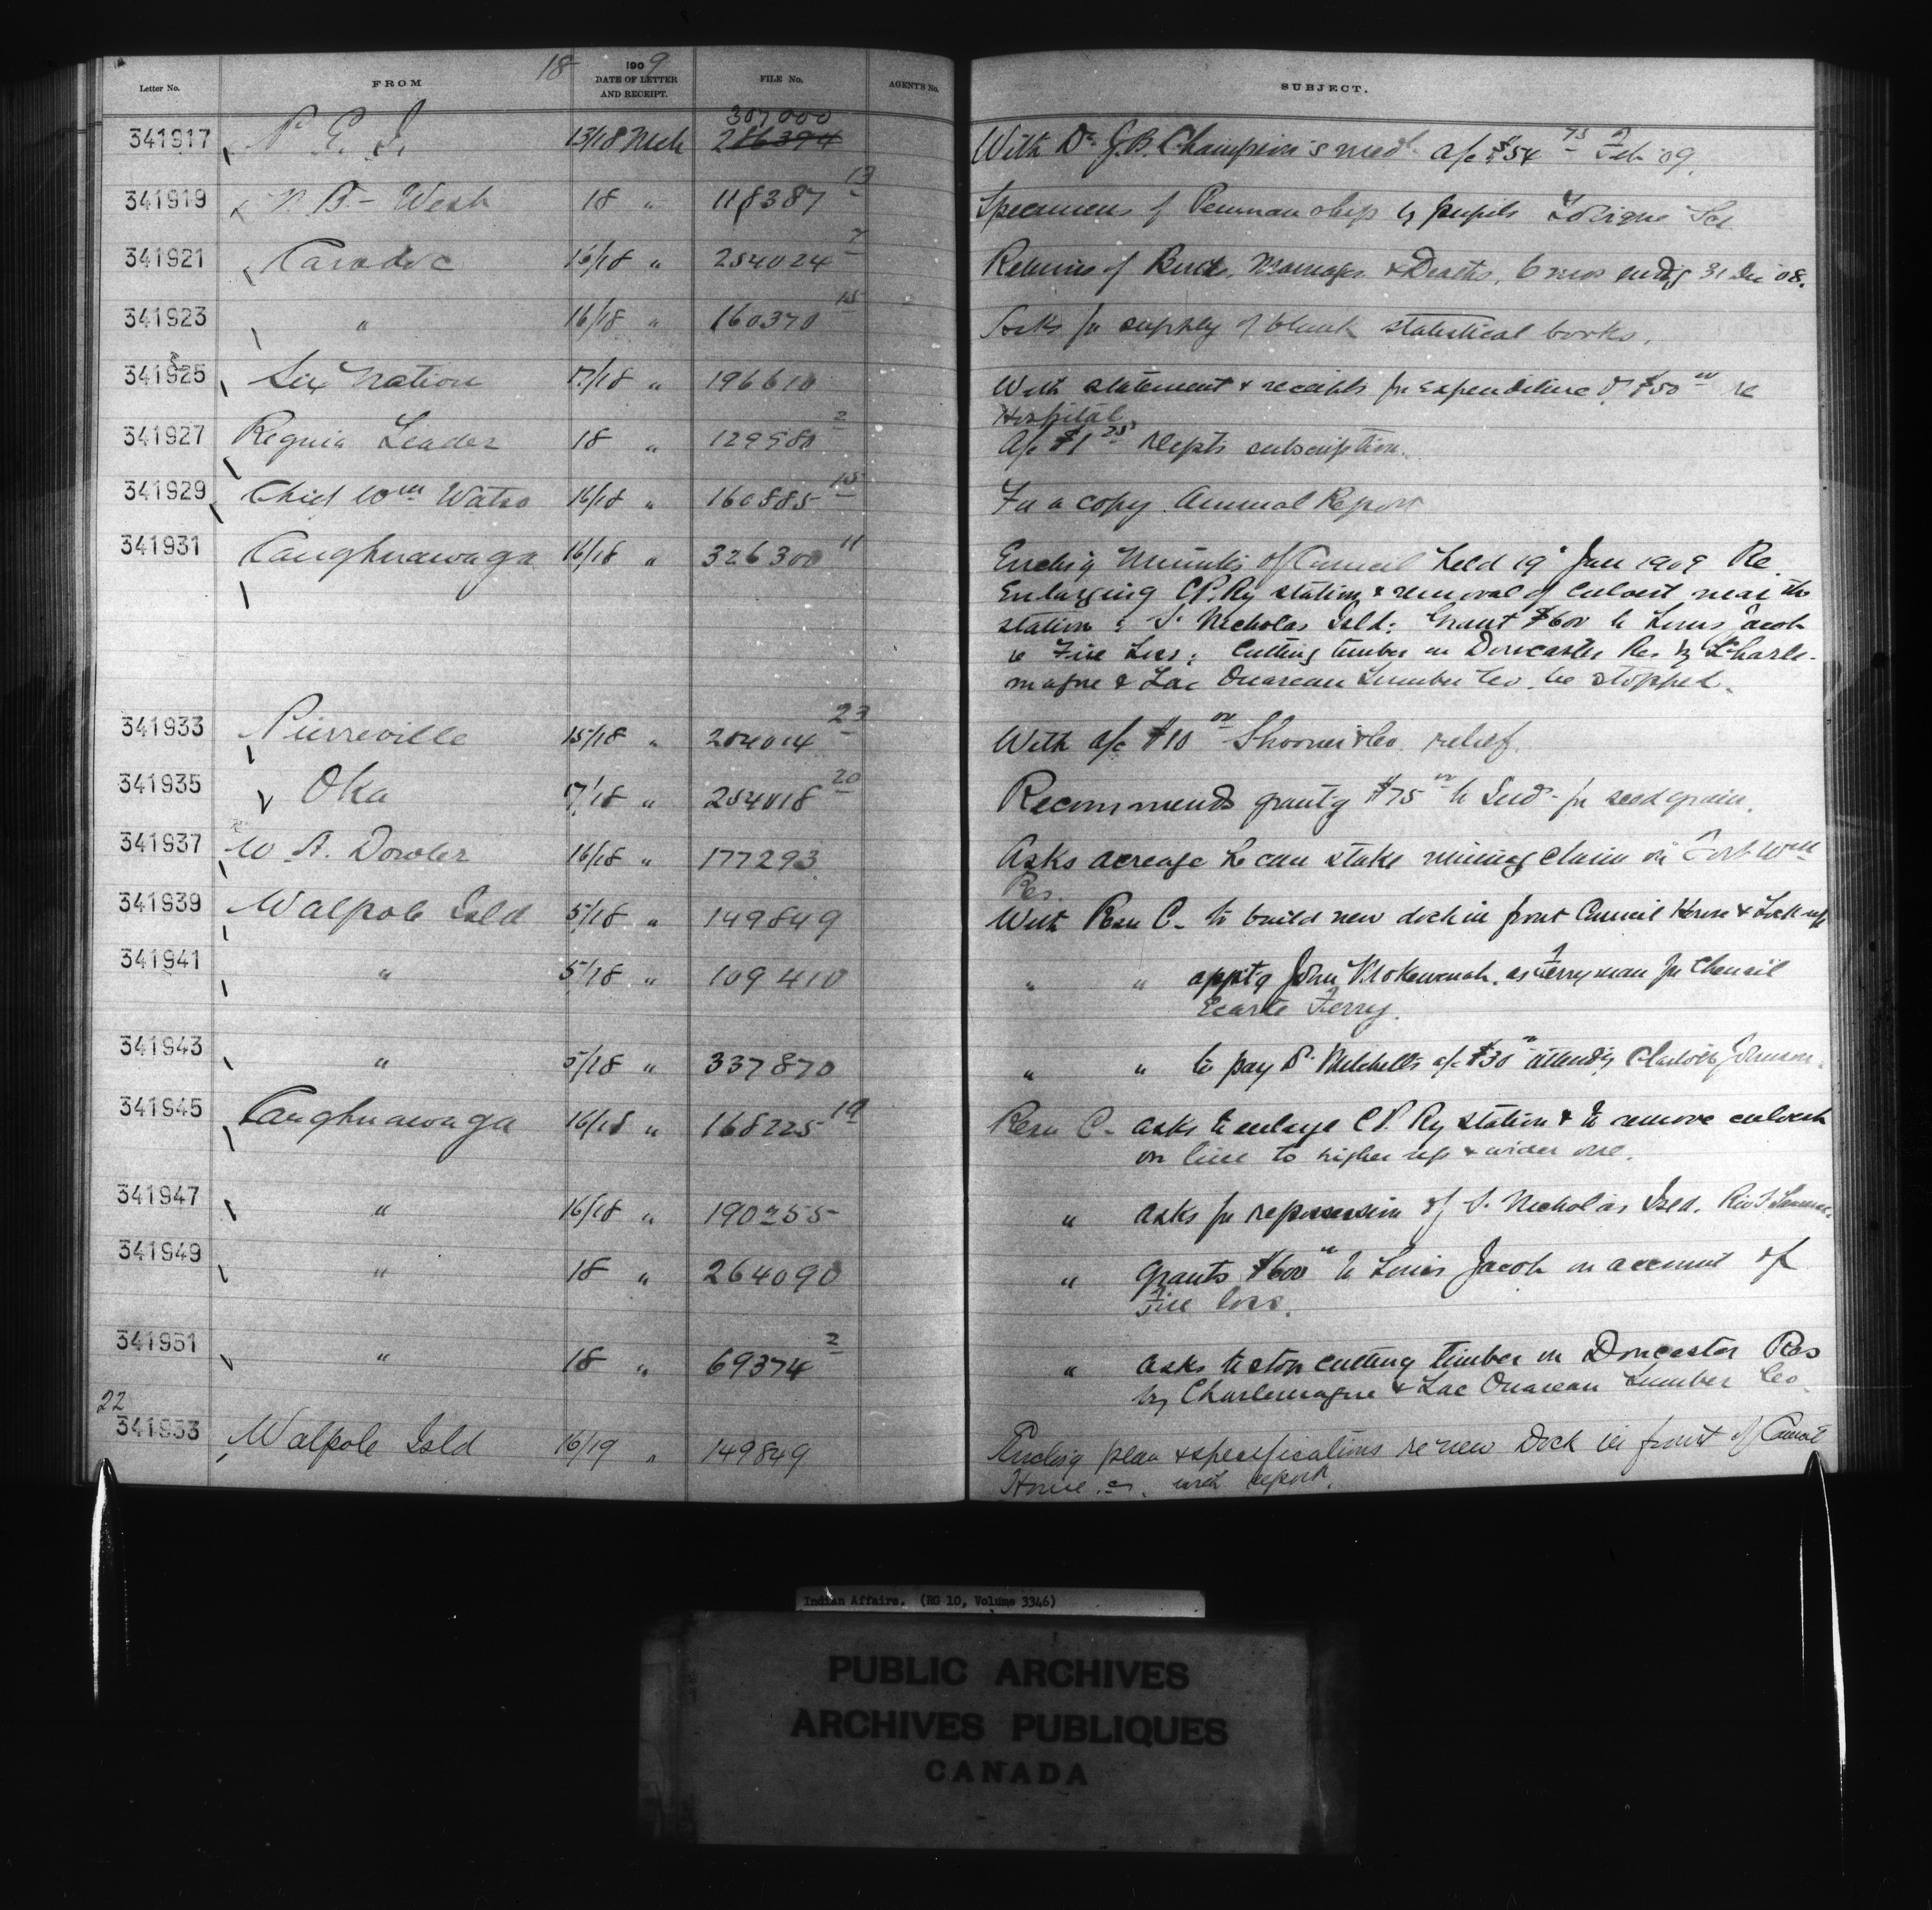 18 1909
Letter No. FROM DATE OF LETTER AND RECEIPT. FILE No. AGENT'S No. SUBJECT.
307000
341917 P. E. I. 13/18 Mch 286394 With Dr J.B. Champion's med a/c $54 75 Feb '09.
341919 N B - West 18 " 118387 13 Specimens of Penmanship by pupils Sch
341921 Caradoc 16/18 " 254024 7 Returns of Births, Marriages & Deaths, 6 mos endg 31 Dec '08.
341923 " 16/18 " 160370 15 Asks for supply of blank statistical books.
341925 Six Nation 17/18 " 196610 With statement & receipts for expenditure of $50 00 re
Hospital
341927 Regina Leader 18 " 129980 2 A/c $1 25 Depts subscription.
341929 Chief Wm Watso 16/18 " 160885 15 For a copy Annual Report
341931 Caughnawaga 16/18 " 326300 11 Encleg Minutes of Council held 19 Jan 1909 Re
Enlarging C.P. Ry station & removal of culvert near the
station; S. Nicholas Isld; Grant $600 to Louis Jacob
re Fire Loss; Cutting timber on Doncaster Res by Charle-
magne & Lac Ouareau Lumber Co. be stopped.
341933 Pierreville 15/18 " 254014 23 With a/c $10 00 Shooner & Co. relief.
341935 Oka 17/18 " 254018 20 Recommends grantg $75 00 to Inds for seed grain.
341937 W. A. Dowler 16/18 " 177293 Asks acreage he can stake mining claim on Fort Wm
Res.
341939 Walpole Isld 5/18 " 149849 With Resn C. to build new dock in front Council House & Lock up
341941 " 5/18 " 109410 " " apptg John as Ferryman for Chenail
Ecarte Ferry.
341943 " 5/18 " 337870 " " to pay Dr Mitchell's a/c $30 00 attendg Johnson.
341945 Caughnawaga 16/18 " 168225 19 Resn C. asks to enlarge C.P. Ry station & to remove culvert
on line to higher up & wider one.
341947 " 16/18 " 190255 " asks for repossession of S. Nicholas Isld. Riv
341949 " 18 " 264090 " grants $600 00 to Louis Jacob on account of
Fire loss.
341951 " 18 " 69374 2 " asks to stop cutting timber on Doncaster Res
by Charlemagne & Lac Ouareau Lumber Co.
22
341953 Walpole Isld 16/19 " 149849 Encleg plan & specifications re new Dock in front of Council
House &c. with report.
Indian Affairs. (RG 10, Volume 3346)
PUBLIC ARCHIVES
ARCHIVES PUBLIQUES
CANADA